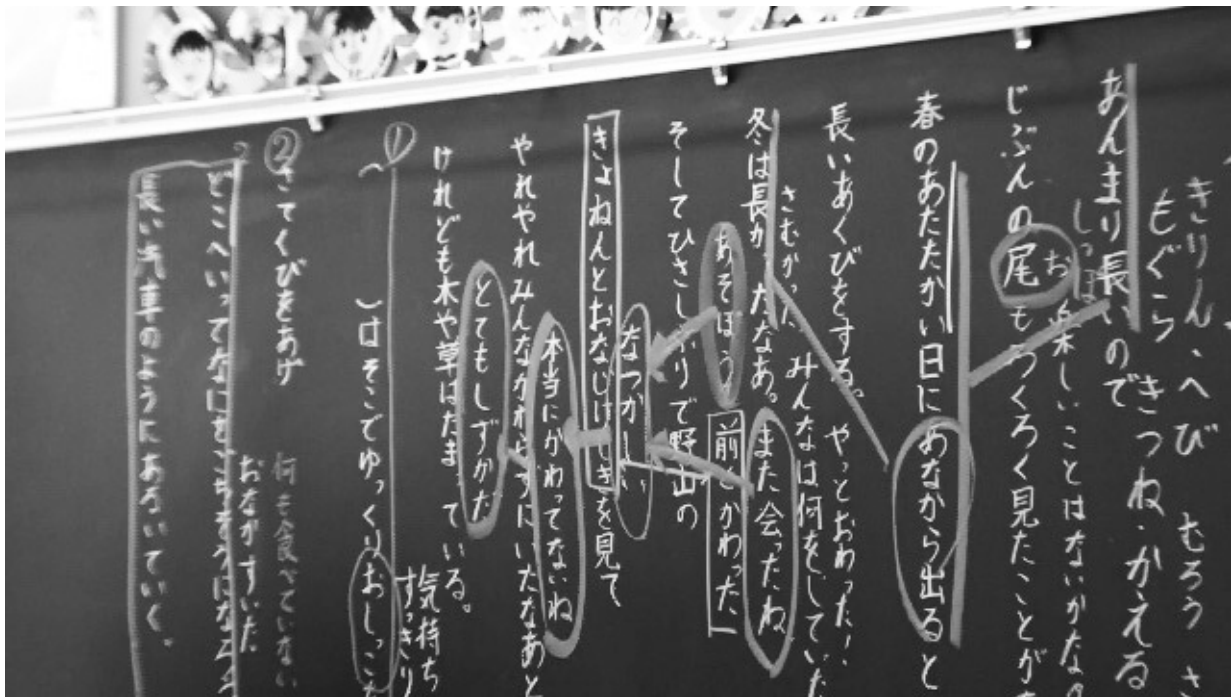 きりん、へび むろう さ
もぐら きつね・かえる
あんまり長いので
しっぽ
お 楽しいことはないかなの
じぶんの尾もろくろく見たことがな
春のあたたかい日にあなから出ると
長いあくびをする。 やっとおわった!
さむかった みんなは何をしていた
冬は長かったなあ。また会ったね
あそぼう 前とかわった
そしてひさしぶりで野山の
なつかしい
きょねんとおなじけしきを見て、
本当にかわってないね
やれやれみんなかわらずにいたなあと
とてもしずかだ
けれども木や草はだまっている。
気持ち
すっきり
①
( )はそこでゆっくりおしっこを
②さてくびをあげ 何も食べていない
おながすいた
どこへいってなにをごちそうになろう
長い汽車のようにあるいていく。